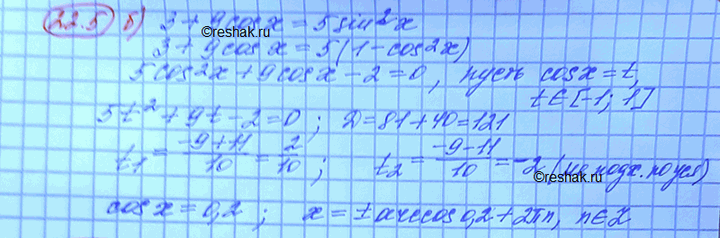 22.5 б) 3 + 9cosx = 5sin²x
3 + 9cosx = 5(1-cos²x)
5cos²x + 9cosx - 2 = 0, пусть cosx = t,
t ∈ [-1; 1]
5t² + 9t - 2 = 0 ; D = 81 + 40 = 121
t₁ = (-9+11)/10 = 2/10 ; t₂ = (-9-11)/10 = -2 (не подх. по усл)
cosx = 0,2 ; x = ± arccos 0,2 + 2πn, n ∈ Z